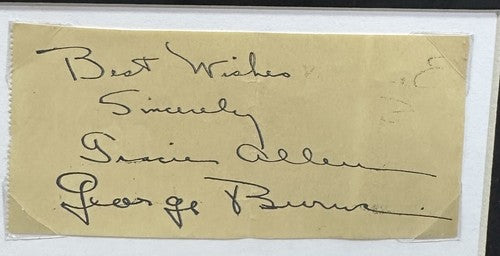 Best Wishes
Sincerely
Gracie Allen
George Burns